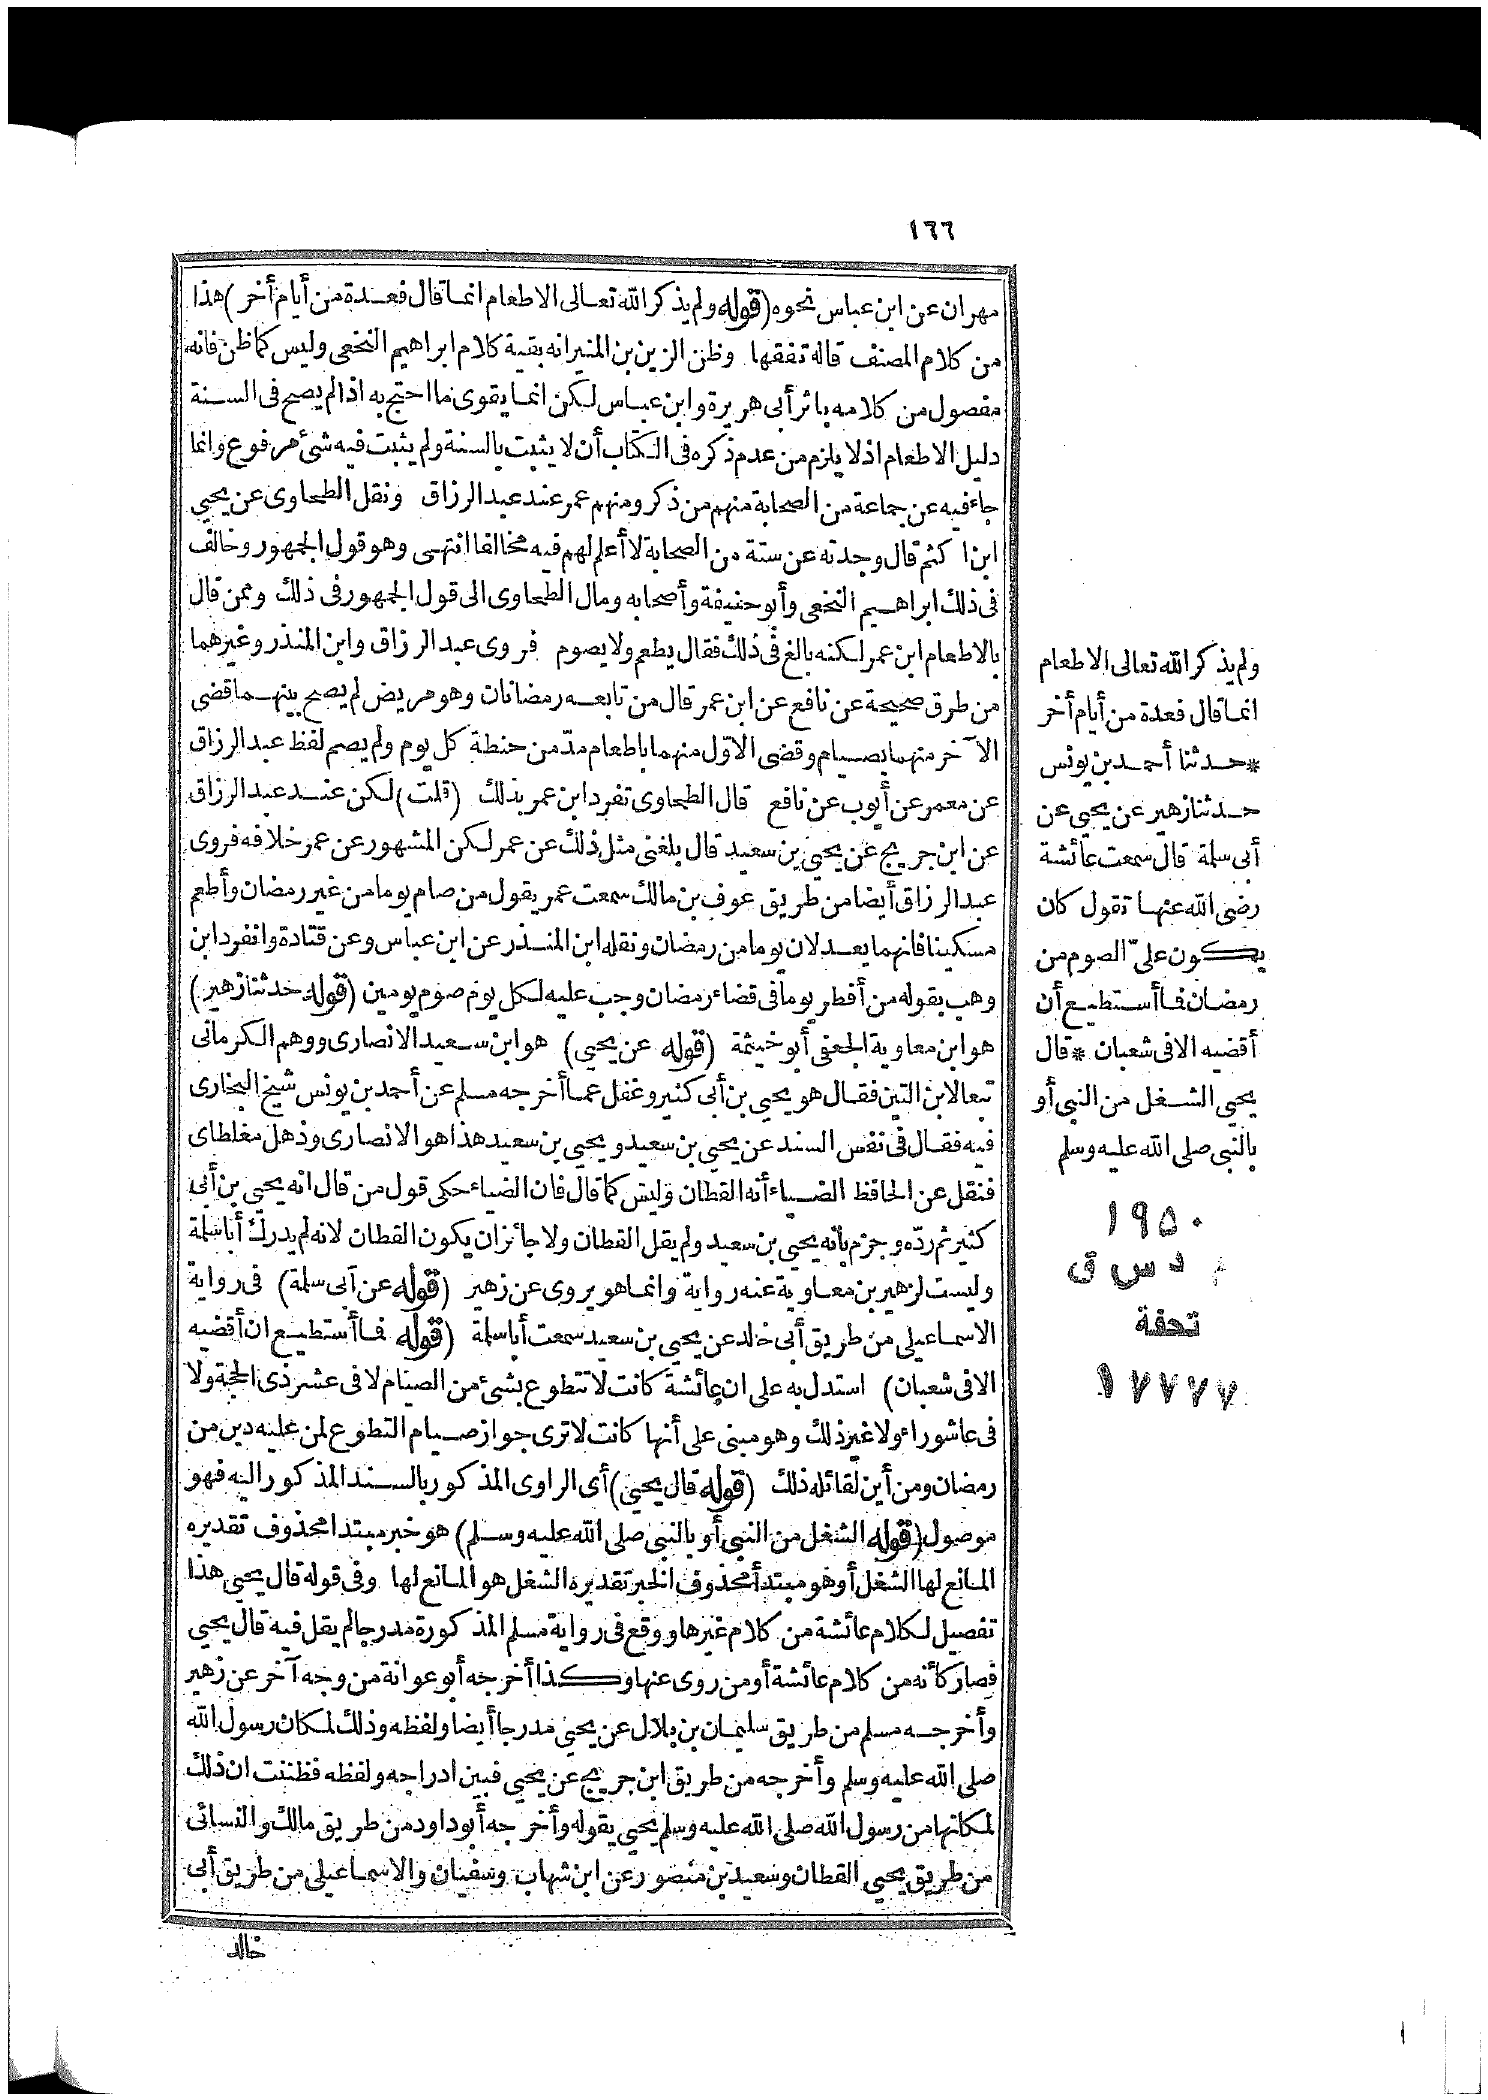 ١٦٦
مهران عن ابن عباس نحوه (قوله ولم يذكر الله تعالى الاطعام انما قال فعدة من أيام أخر) هذا
من كلام المصنف قاله تفقها وظن الزين بن المنير انه بقية كلام ابراهيم النخعى وليس كما ظن فانه
مفصول من كلامه باثر أبى هريرة وابن عباس لكن انما يقوى ما احتج به اذا لم يصح فى السنة
دليل الاطعام اذ لا يلزم من عدم ذكره فى الكتاب أن لا يثبت بالسنة ولم يثبت فيه شئ مرفوع وانما
جاء فيه عن جماعة من الصحابة منهم من ذكر ومنهم عمر عند عبد الرزاق ونقل الطحاوى عن يحيى
ابن اكثم قال وجدته عن ستة من الصحابة لا أعلم لهم فيه مخالفا انتهى وهو قول الجمهور وخالف
فى ذلك ابراهيم النخعى وأبو حنيفة وأصحابه ومال الطحاوى الى قول الجمهور فى ذلك وممن قال
بالاطعام ابن عمر لكنه بالغ فى ذلك فقال يطعم ولا يصوم فروى عبد الرزاق وابن المنذر وغيرهما
من طرق صحيحة عن نافع عن ابن عمر قال من تابعه رمضانان وهو مريض لم يصح بينهما قضى
الآخر منهما بصيام وقضى الاوّل منهما باطعام مدّ من حنطة كل يوم ولم يصم لفظ عبد الرزاق
عن معمر عن أيوب عن نافع قال الطحاوى تفرد ابن عمر بذلك (قلت) لكن عند عبد الرزاق
عن ابن جريج عن يحيى بن سعيد قال بلغنى مثل ذلك عن عمر لكن المشهور عن عمر خلافه فروى
عبد الرزاق أيضا من طريق عوف بن مالك سمعت عمر يقول من صام يوما من غير رمضان وأطعم
مسكينا فانهما يعدلان يوما من رمضان ونقله ابن المنذر عن ابن عباس وعن قتادة وانفرد ابن
وهب بقوله من أفطر يوما فى قضاء رمضان وجب عليه لكل يوم صوم يومين (قوله حدثنا زهير)
هو ابن معاوية الجعفى أبو خيثمة (قوله عن يحيى) هو ابن سعيد الانصارى ووهم الكرمانى
تبعا لابن التين فقال هو يحيى بن أبى كثير وغفل عما أخرجه مسلم عن أحمد بن يونس شيخ البخارى
فيه فقال فى نفس السند عن يحيى بن سعيد ويحيى بن سعيد هذا هو الانصارى وذهل مغلطاى
فنقل عن الحافظ الضياء أنه القطان وليس كما قال فان الضياء حكى قول من قال انه يحيى بن أبى
كثير ثم ردّه وجزم بأنه يحيى بن سعيد ولم يقل القطان ولا جائز ان يكون القطان لانه لم يدرك أبا سلمة
وليست لزهير بن معاوية عنه رواية وانما هو يروى عن زهير (قوله عن أبى سلمة) فى رواية
الاسماعيلى من طريق أبى خالد عن يحيى بن سعيد سمعت أبا سلمة (قوله فما أستطيع ان أقضيه
الا فى شعبان) استدل به على ان عائشة كانت لا تتطوع بشئ من الصيام لا فى عشر ذى الحجة ولا
فى عاشوراء ولا غير ذلك وهو مبنى على أنها كانت لا ترى جواز صيام التطوع لمن عليه دين من
رمضان ومن أين لقائله ذلك (قوله قال يحيى) أى الراوى المذكور بالسند المذكور اليه فهو
موصول (قوله الشغل من النبى أو بالنبى صلى الله عليه وسلم) هو خبر مبتدا محذوف تقديره
المانع لها الشغل أو هو مبتدأ محذوف الخبر تقديره الشغل هو المانع لها وفى قوله قال يحيى هذا
تفصيل لكلام عائشة من كلام غيرها ووقع فى رواية مسلم المذكورة مدرجا لم يقل فيه قال يحيى
فصار كأنه من كلام عائشة أو من روى عنها وكذا أخرجه أبو عوانة من وجه آخر عن زهير
وأخرجه مسلم من طريق سليمان بن بلال عن يحيى مدرجا أيضا ولفظه وذلك لمكان رسول الله
صلى الله عليه وسلم وأخرجه من طريق ابن جريج عن يحيى فبين ادراجه ولفظه فظننت ان ذلك
لمكانها من رسول الله صلى الله عليه وسلم يحيى يقوله وأخرجه أبو داود من طريق مالك والنسائى
من طريق يحيى القطان وسعيد بن منصور عن ابن شهاب وسفيان والاسماعيلى من طريق أبى
خالد
ولم يذكر الله تعالى الاطعام
انما قال فعدة من أيام أخر
* حدثنا أحمد بن يونس
حدثنا زهير عن يحيى عن
أبى سلمة قال سمعت عائشة
رضى الله عنها تقول كان
يكون علىّ الصوم من
رمضان فما أستطيع أن
أقضيه الا فى شعبان * قال
يحيى الشغل من النبى أو
بالنبى صلى الله عليه وسلم
١٩٥٠
م د س ق
تحفة
١٧٧٧٧